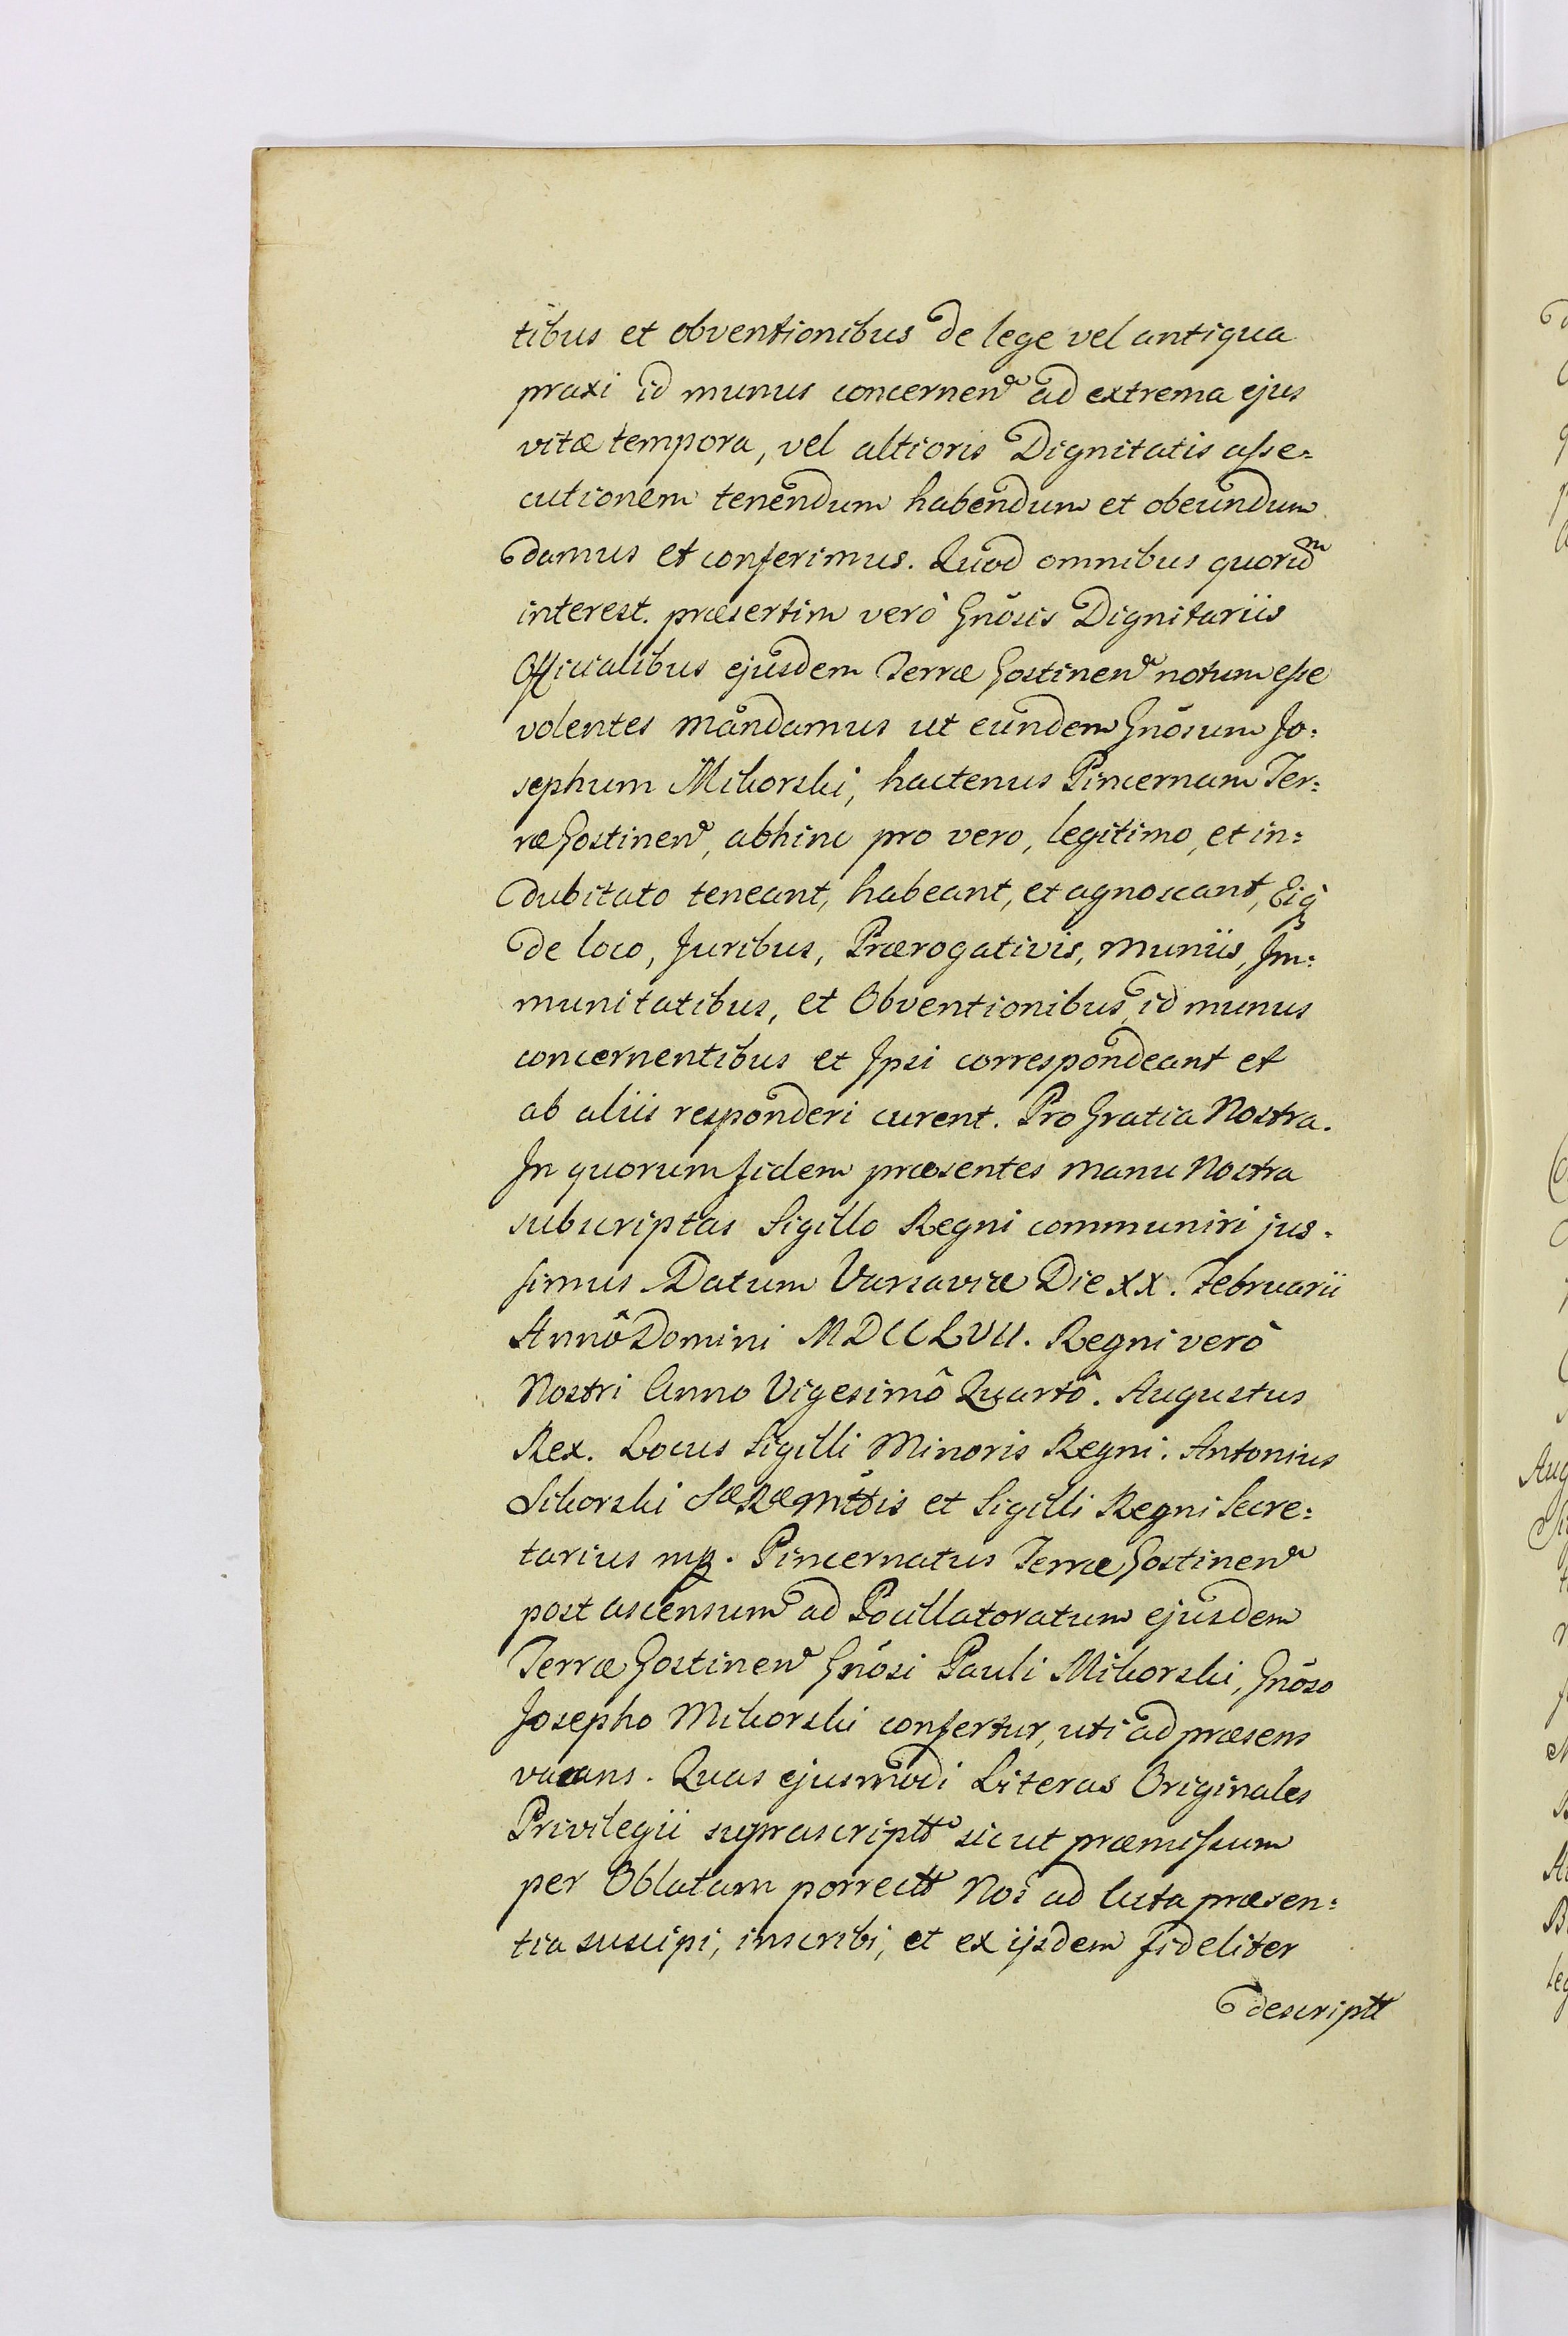 tibus et obventionibus de lege vel antiqua
praxi id munus concernen̄ ad extrema ejus
vitæ tempora, vel altioris Dignitatis aſse=
cutionem tenendum habendum et obeundum
damus et conferimus. Quod omnibus quoru͞m
interest. præsertim verò Gnōsis Dignitariis
Officialibus ejusdem Terræ Gostinen̄ notum eſse
volentes mandamus ut eundem Gnōsum Jo=
sephum Mikorski, hactenus Pincernam Ter=
ræ Gostinen̄, abhinc pro vero, legitimo, et in=
dubitato teneant, habeant, et agnoscant, Eiq̀
de loco, Juribus, Prærogativis, muniis, Im=
munitatibus, et Obventionibus, id munus
concernentibus et Ipsi correspondeant et
ab aliis responderi curent. Pro Gratia Nostra.
In quorum fidem præsentes manu Nostra
subscriptas Sigillo Regni communiri jus=
simus. Datum Varsaviæ Die XX. Februarii
Annô Domini MDCCLVII. Regni verò
Nostri Anno Vigesimô Quartô. Augustus
Rex. Locus Sigilli Minoris Regni. Antonius
Sikorski SæRæMttis et Sigilli Regni Secre=
tarius mp. Pincernatus Terræ Gostinen̄
post ascensum ad Pocillatoratum ejusdem
Terræ Gostinen̄ Gnōsi Pauli Mikorski, Gnōso
Josepho Mikorski confertur, uti ad præsens
vacans. Quas ejusmodi Literas Originales
Privilegii suprascriptt sicut præmiſsum
per Oblatam porrectt Nos ad Acta præsen=
tia suscipi, inscribi, et ex ijsdem fideliter
descriptt